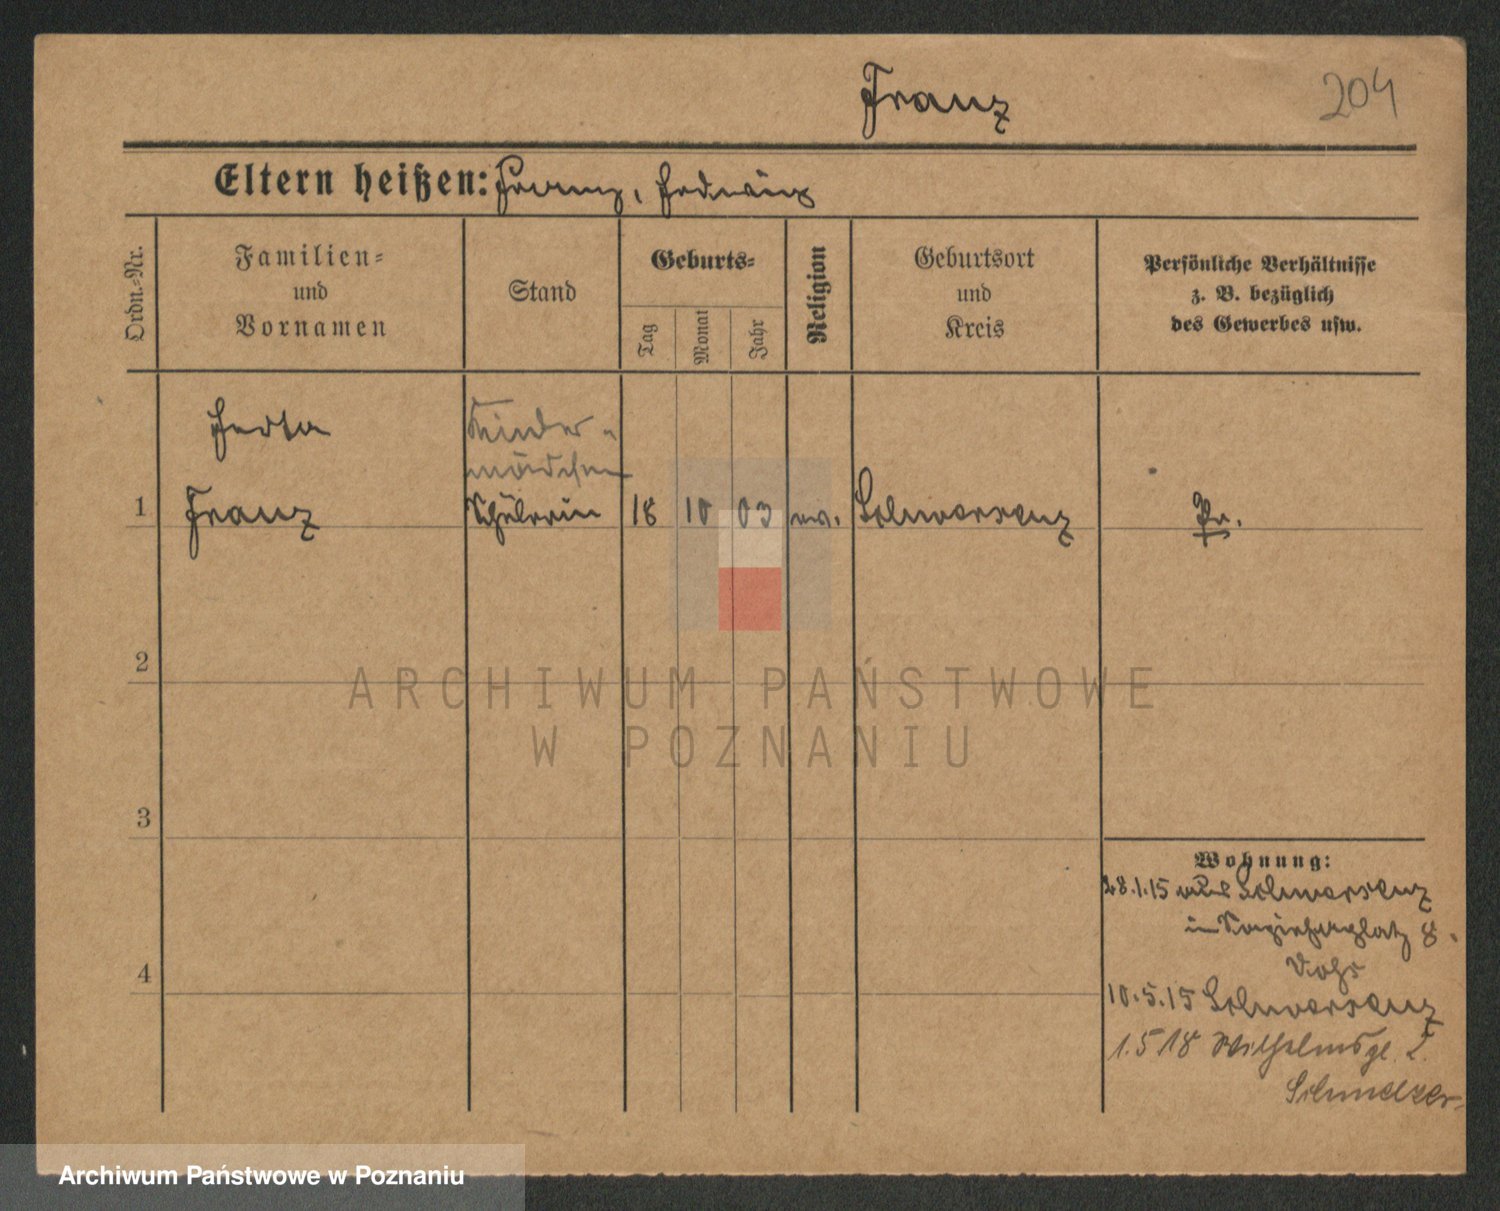 Franz 204
Eltern heißen: Franz, Hedwig
Ordn.=Nr.
Familien=
und
Vornamen
Stand
Geburts=
Tag
Monat
Jahr
Religion
Geburtsort
und
Kreis
Persönliche Verhältnisse
z. B. bezüglich
des Gewerbes usw.
Herta
Kinder-
mädchen
1 Franz Schülerin 18 10 03 ev. Schwersenz Pr.
2
3
4
ARCHIWUM PAŃSTWOWE
W POZNANIU
Wohnung:
28.1.15 aus Schwersenz
in 8.
10.5.15 Schwersenz
1.5 18 Wilhelmsge. 2.
Schmelzer
Archiwum Państwowe w Poznaniu